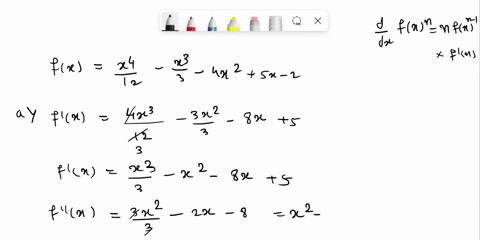 d/dx f(x)^n = n f(x)^(n-1)
× f'(x)
f(x) = x4/12 - x3/3 - 4x2 + 5x - 2
a) f'(x) = 4x3/12 3 - 3x2/3 - 8x + 5
f'(x) = x3/3 - x2 - 8x + 5
f''(x) = 3x2/3 - 2x - 8 = x2 -